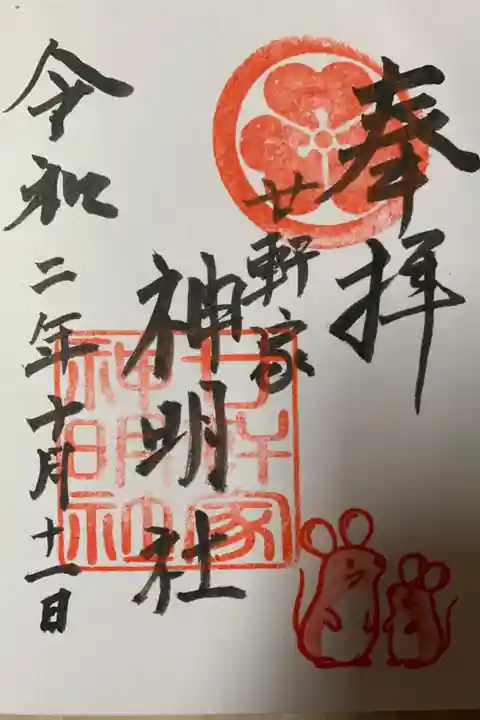 奉拝
廿軒家
神明社
令和二年十月十一日
廿軒家
神明社